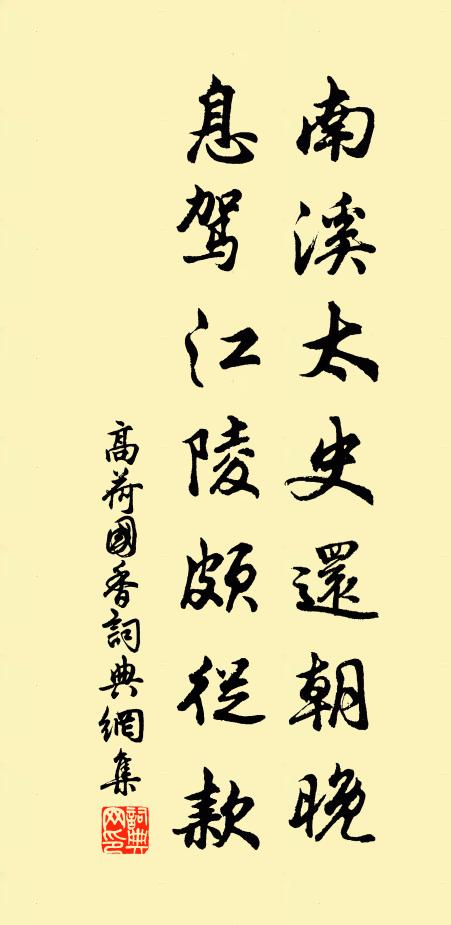 南溪太史還朝晚
息駕江陵頗從款
高荷國香詞典網集
詞典網印